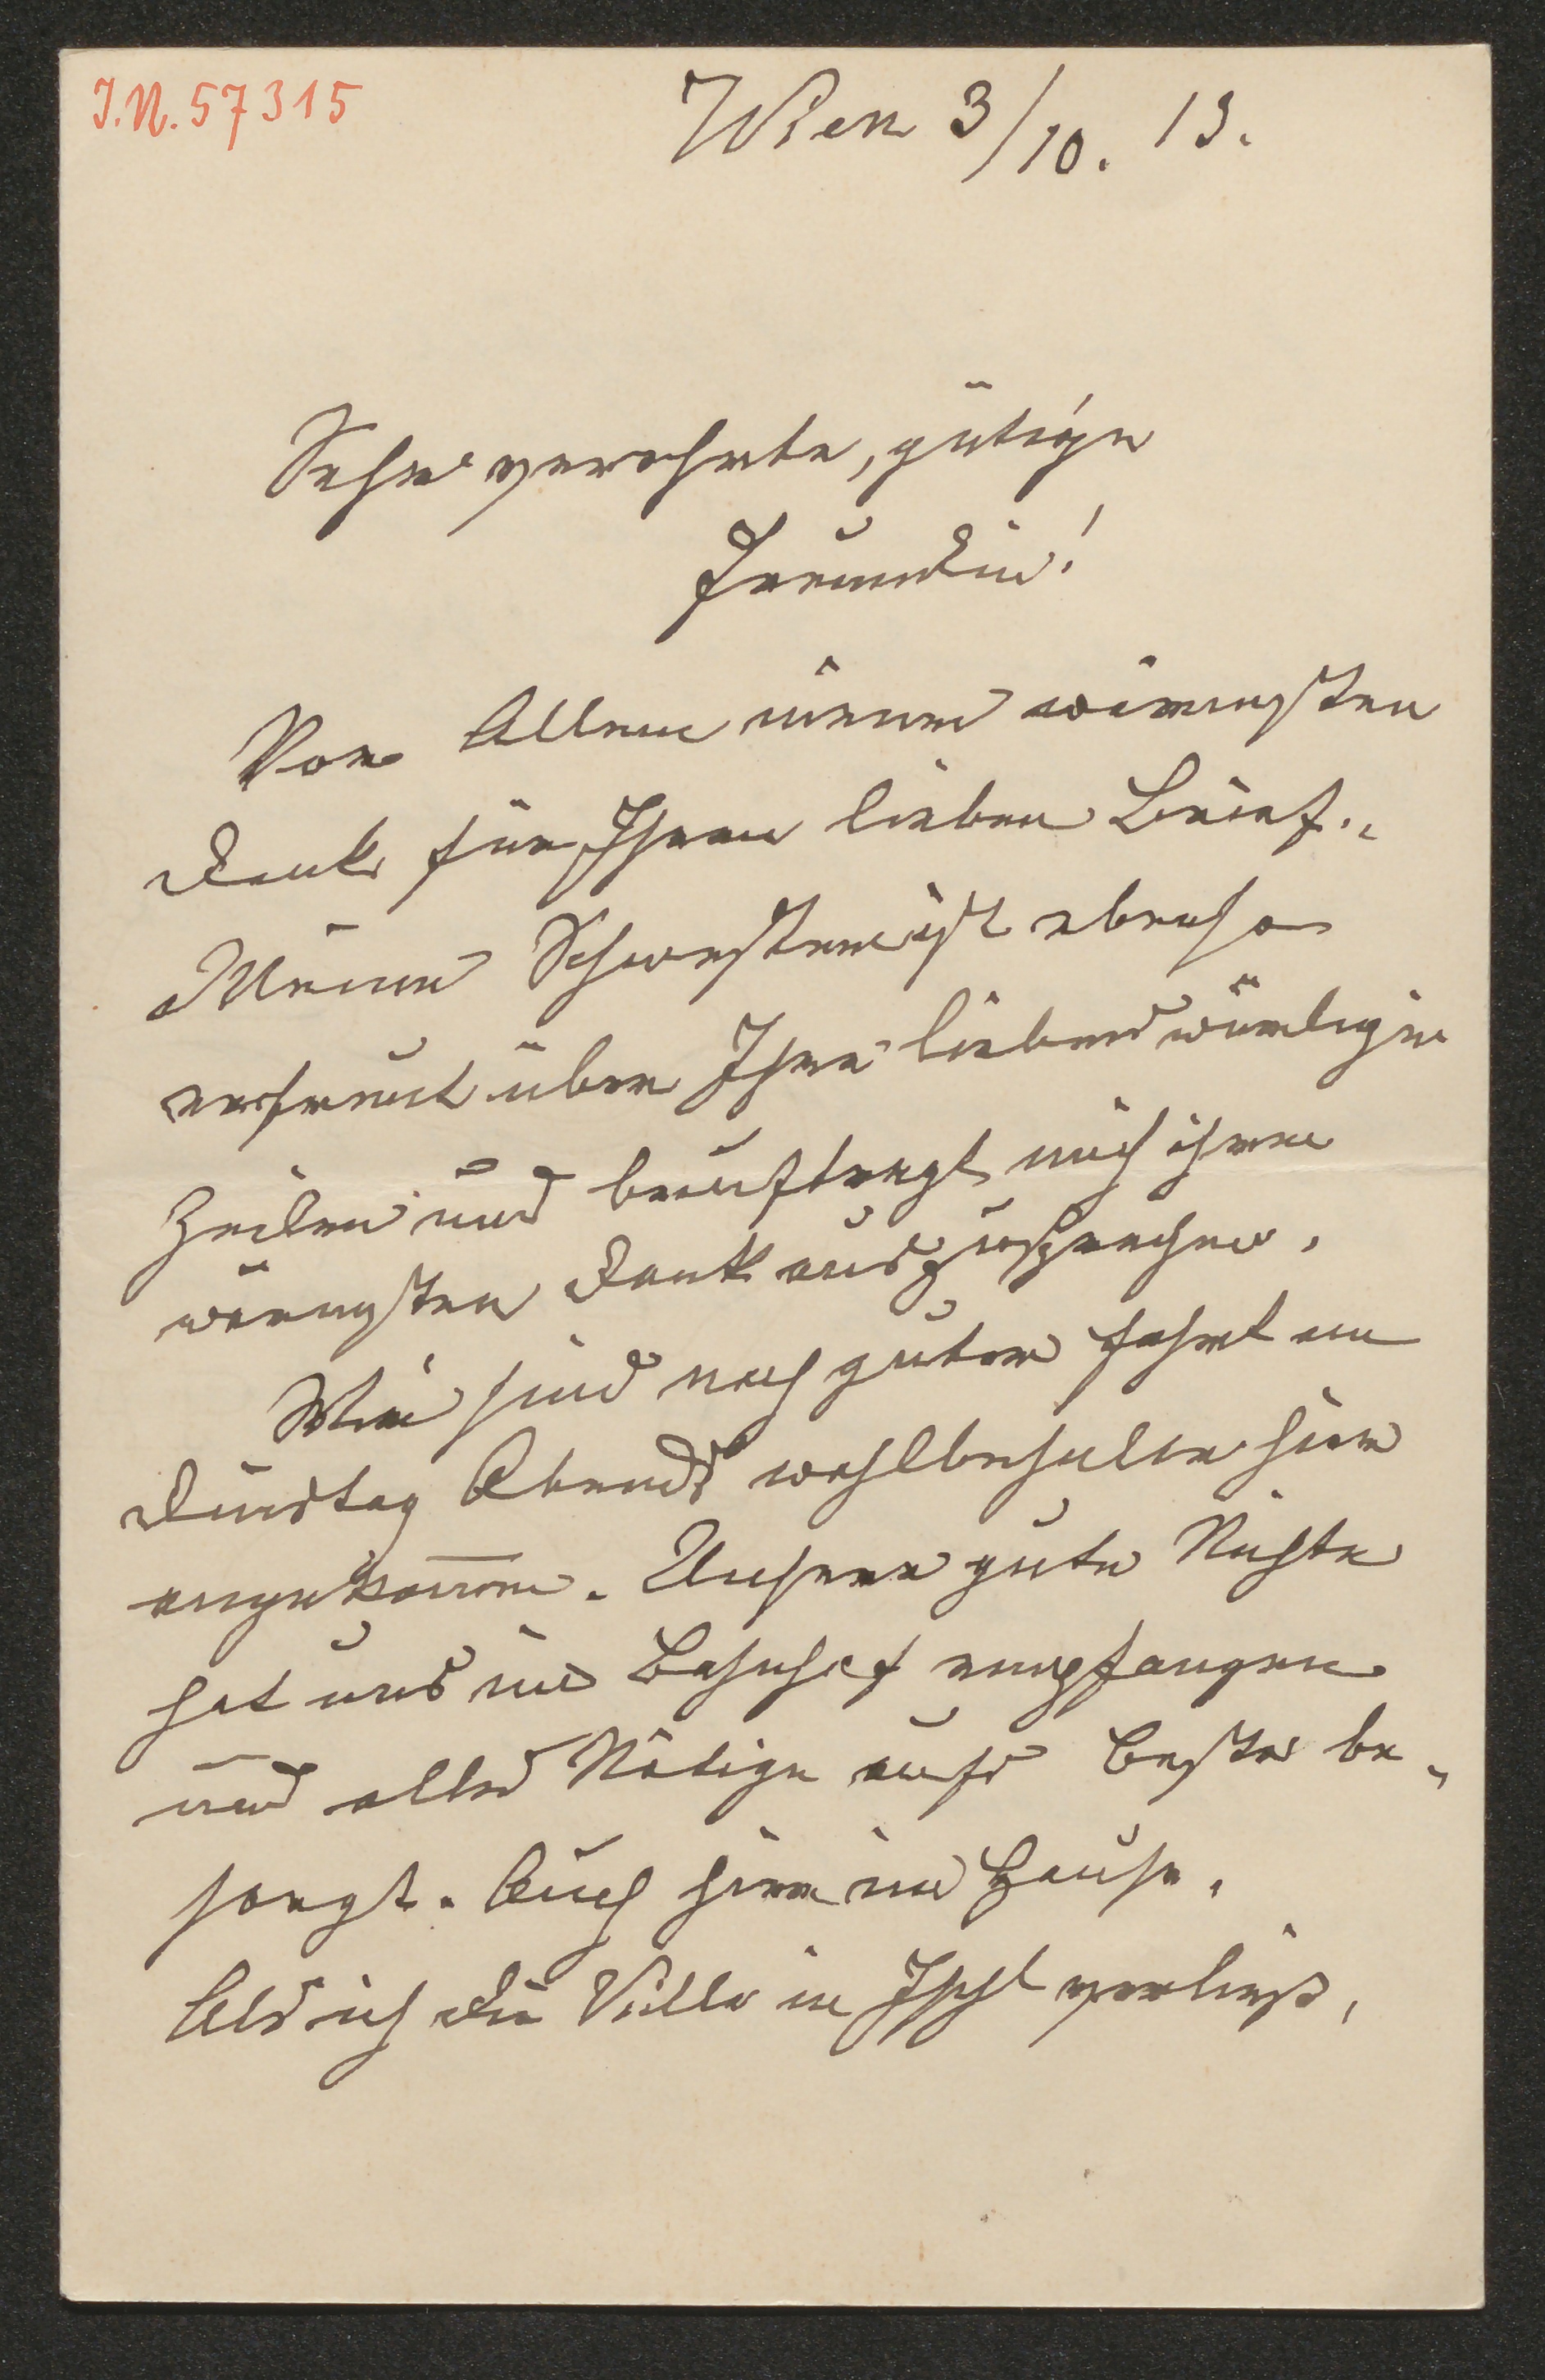 I.N. 57315
Wien 3/10. 13.
Sehr verehrte, gütige
Freundin!
Vor Allem meinen wärmsten
Dank für Ihren lieben Brief.
Meine Schwester ist ebenso
erfreut über Ihre liebenswürdigen
Zeilen und beauftragt mich ihren
wärmsten Dank auszusprechen.
Wir sind nach guter Fahrt am
Dinstag Abends wohlbehalten hier
angekom̅en. Unsere gute Nichte
hat uns im Bahnhof empfangen
und alles Nötige aufs Beste be-
sorgt. Auch hier im Hause.
Als ich die Villa in Ischl verließ,